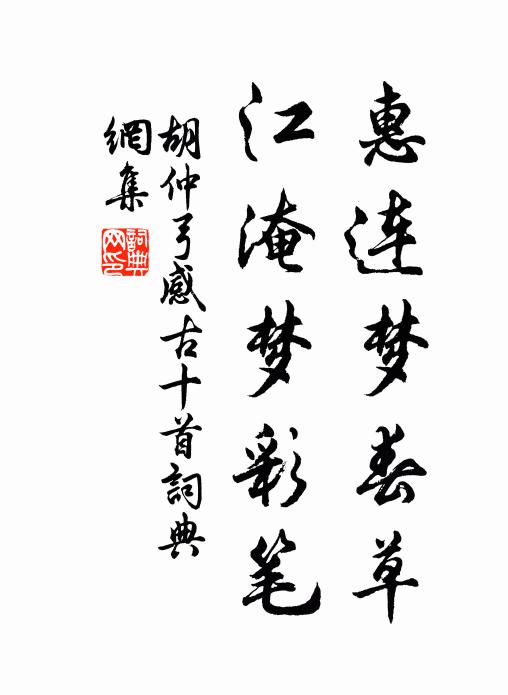 惠连梦春草
江淹梦彩笔
胡仲弓感古十首詞典
網集
詞典
网印